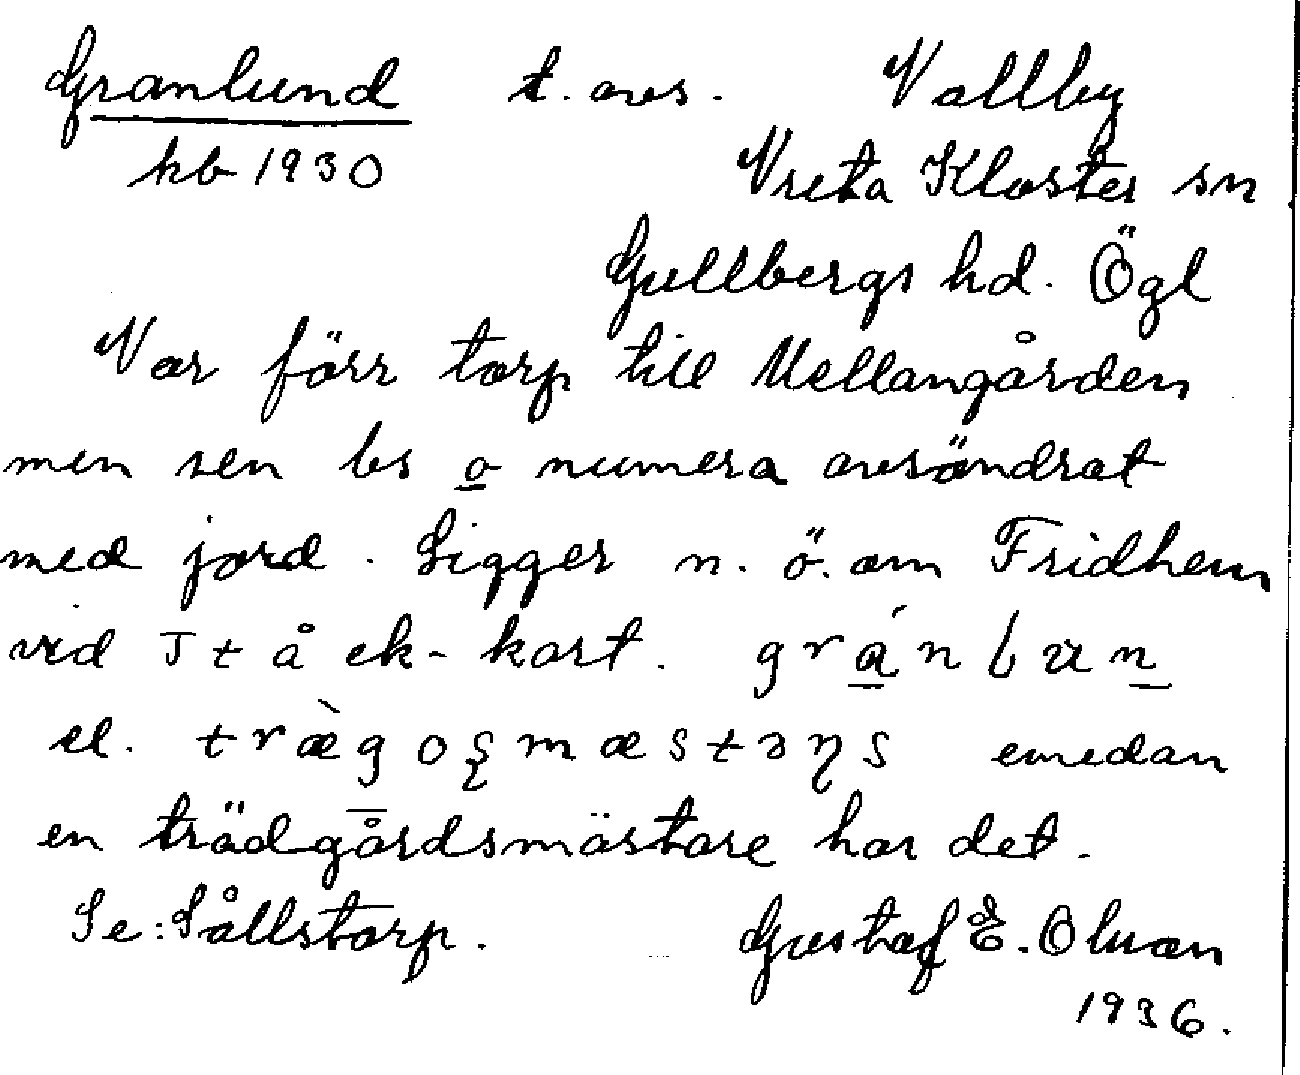 Granlund t. avs. Vallby
kb 1930 Vreta Kloster sn
Gullbergs hd. Ögl
Var förr torp till Mellangården
men sen ls o numera avsöndrat
med jord. Ligger n. ö. om Fridhem
vid J t å ek-kart.
el. emedan
en trädgårdsmästare har det.
Se: Sållstorp. Gustaf E. Olson
1936.